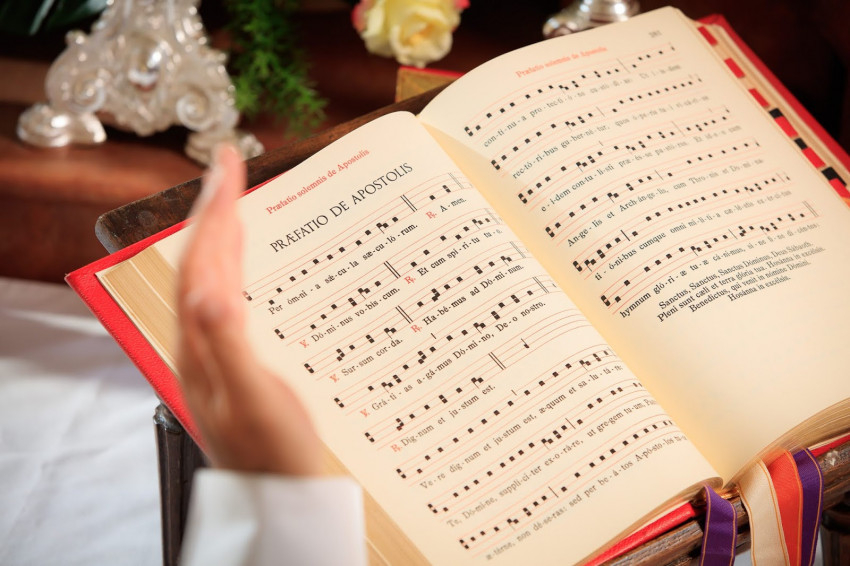 Præfatio solemnis de Apostolis
PRÆFATIO DE APOSTOLIS
Per óm-ni-a sǽ-cu-la sæ-cu-ló-rum. ℟. A-men.
℣. Dó-mi-nus vo-bís-cum. ℟. Et cum spí-ri-tu tu-o.
℣. Sur-sum cor-da. ℟. Ha-bé-mus ad Dó-mi-num.
℣. Grá-ti-as a-gá-mus Dó-mi-no, De-o no-stro.
℟. Dig-num et ju-stum est.
Ve-re dig-num et ju-stum est, æ-quum et sa-lu-tá-
Te, Dó-mi-ne, sup-plí-ci-ter ex-o-rá-re, ut gre-gem tu-um,
æ-térne, non dé-se-ras: sed per be-á-tos A-pó-sto-los
Præfatio solemnis de Apostolis
con-tí-nu-a pro-tec-ti-ó-ne cu-stó-di-as. Et i-ís-dem
rec-tó-ri-bus gu-ber-né-tur, quos ó-pe-ris tu-i vi-cá-ri-os
e-í-dem con-tu-lí-sti præ-és-se pa-stó-res. Et íd-e-o cum
Ange-lis et Archánge-lis, cum Thro-nis et Do-mi-na-
ti-ó-nibus cumque omni mi-lí-ti-a cæ-lé-stis ex-ér-ci-tus
hymnum gló-ri-æ tu-æ cá-nimus, si-ne fi-ne di-cén-tes:
Sanctus, Sanctus, Sanctus Dóminus, Deus Sábaoth.
Pleni sunt cæli et terra glória tua. Hosánna in excélsis.
Benedíctus, qui venit in nómine Dómini.
Hosánna in excélsis.